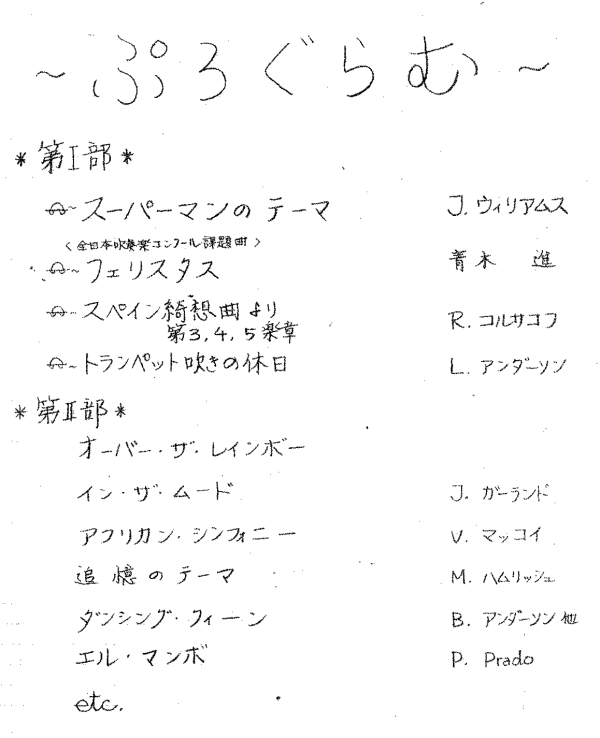 ～ぷろぐらむ～
＊第Ⅰ部＊
スーパーマンのテーマ J. ウィリアムス
〈全日本吹奏楽コンクール課題曲〉
フェリスタス 青木 進
スペイン綺想曲より
第3,4,5楽章 R. コルサコフ
トランペット吹きの休日 L. アンダーソン
＊第Ⅱ部＊
オーバー・ザ・レインボー
イン・ザ・ムード J. ガーランド
アフリカン・シンフォニー V. マッコイ
追憶のテーマ M. ハムリッシュ
ダンシング・クィーン B. アンダーソン 他
エル・マンボ P. Prado
etc.